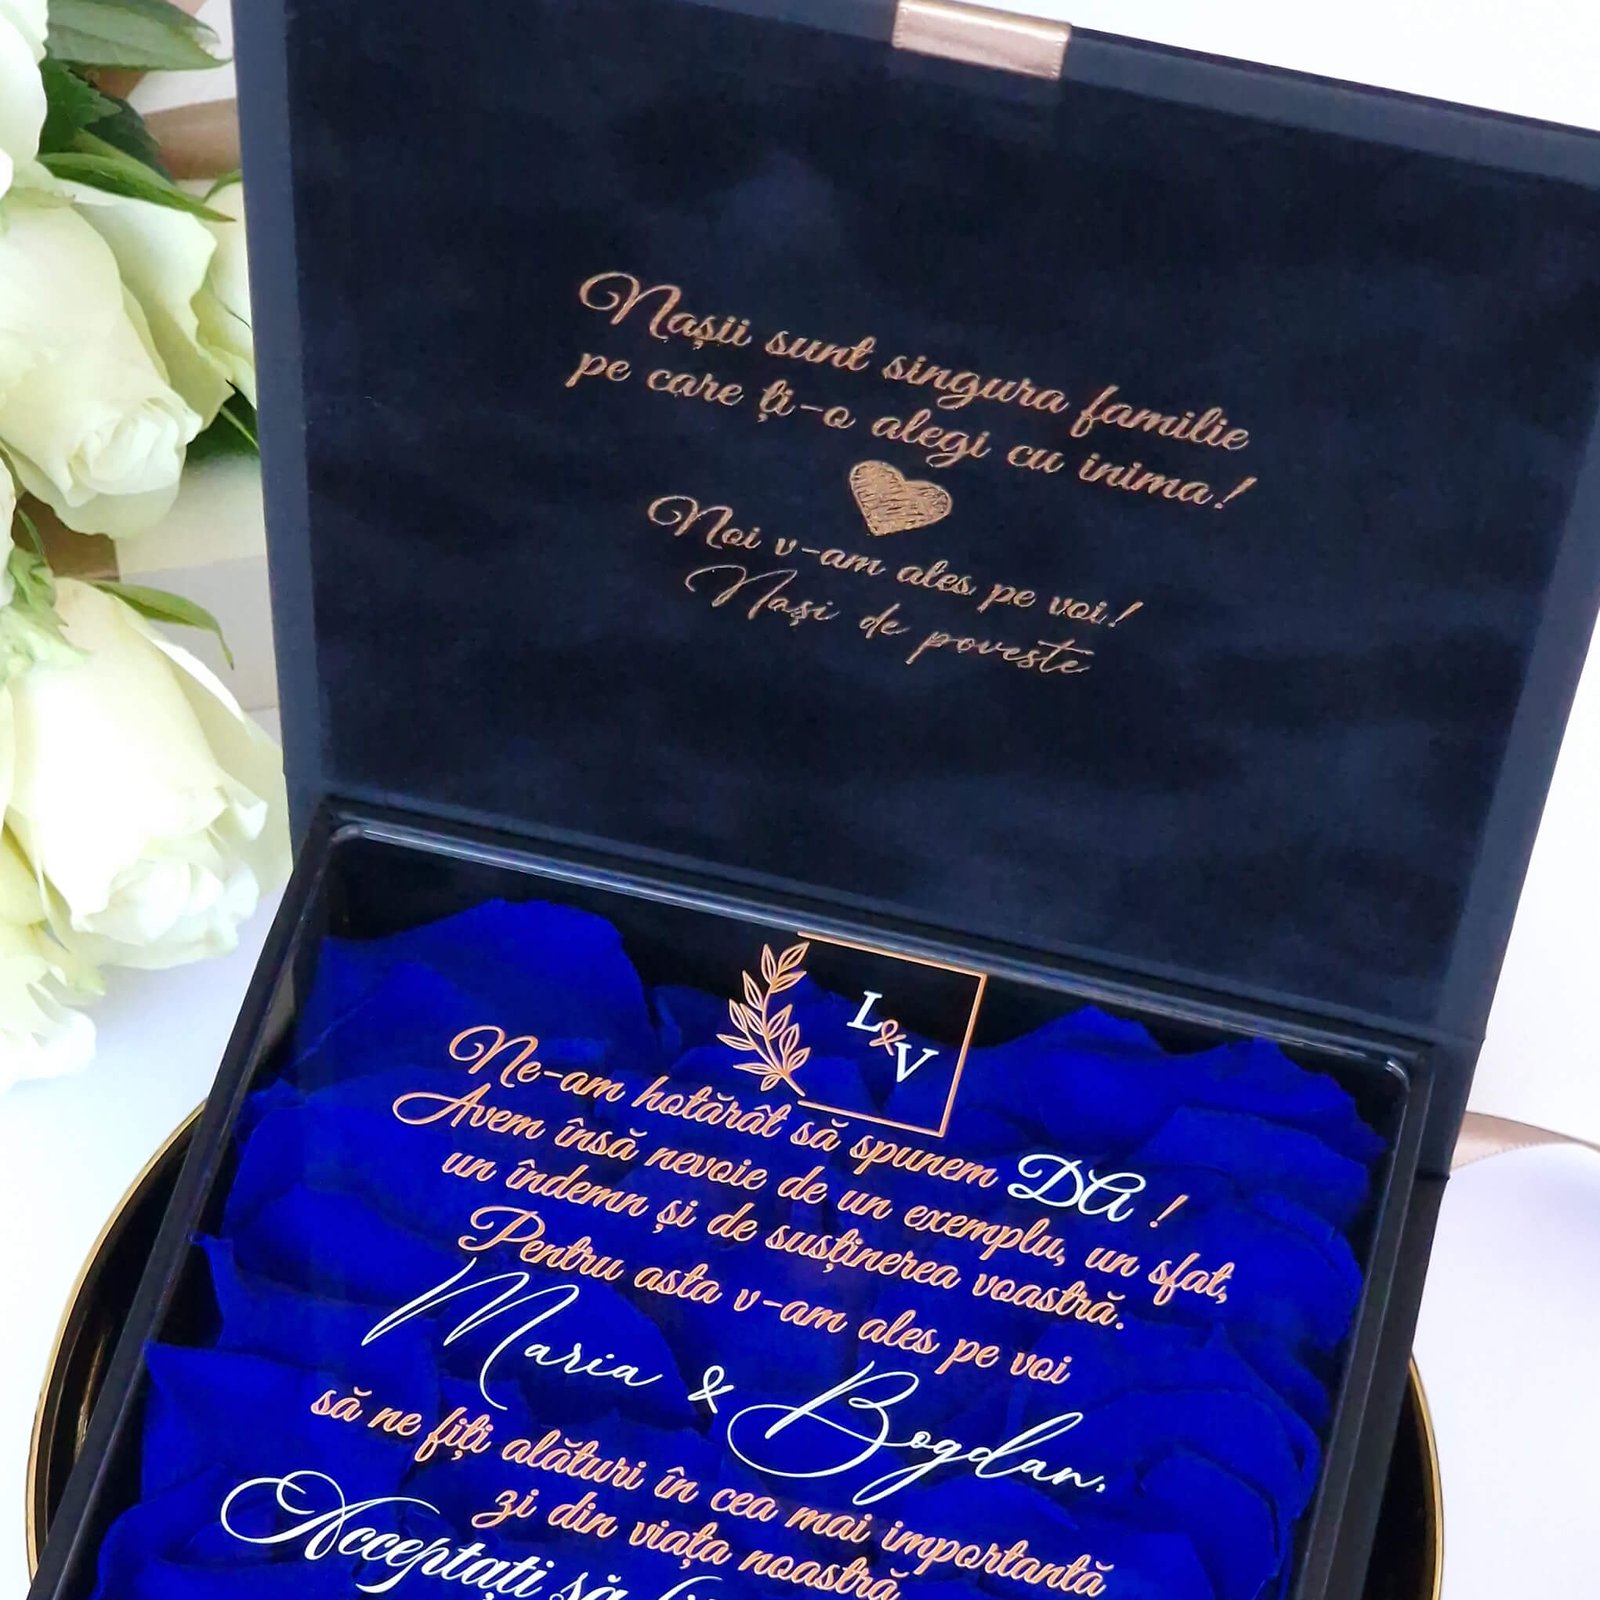 Nașii sunt singura familie
pe care ți-o alegi cu inima!
Noi v-am ales pe voi!
Nași de poveste
L&V
Ne-am hotărât să spunem DA !
Avem însă nevoie de un exemplu, un sfat,
un îndemn și de susținerea voastră.
Pentru asta v-am ales pe voi
Maria & Bogdan,
să ne fiți alături în cea mai importantă
zi din viața noastră
Acceptați să